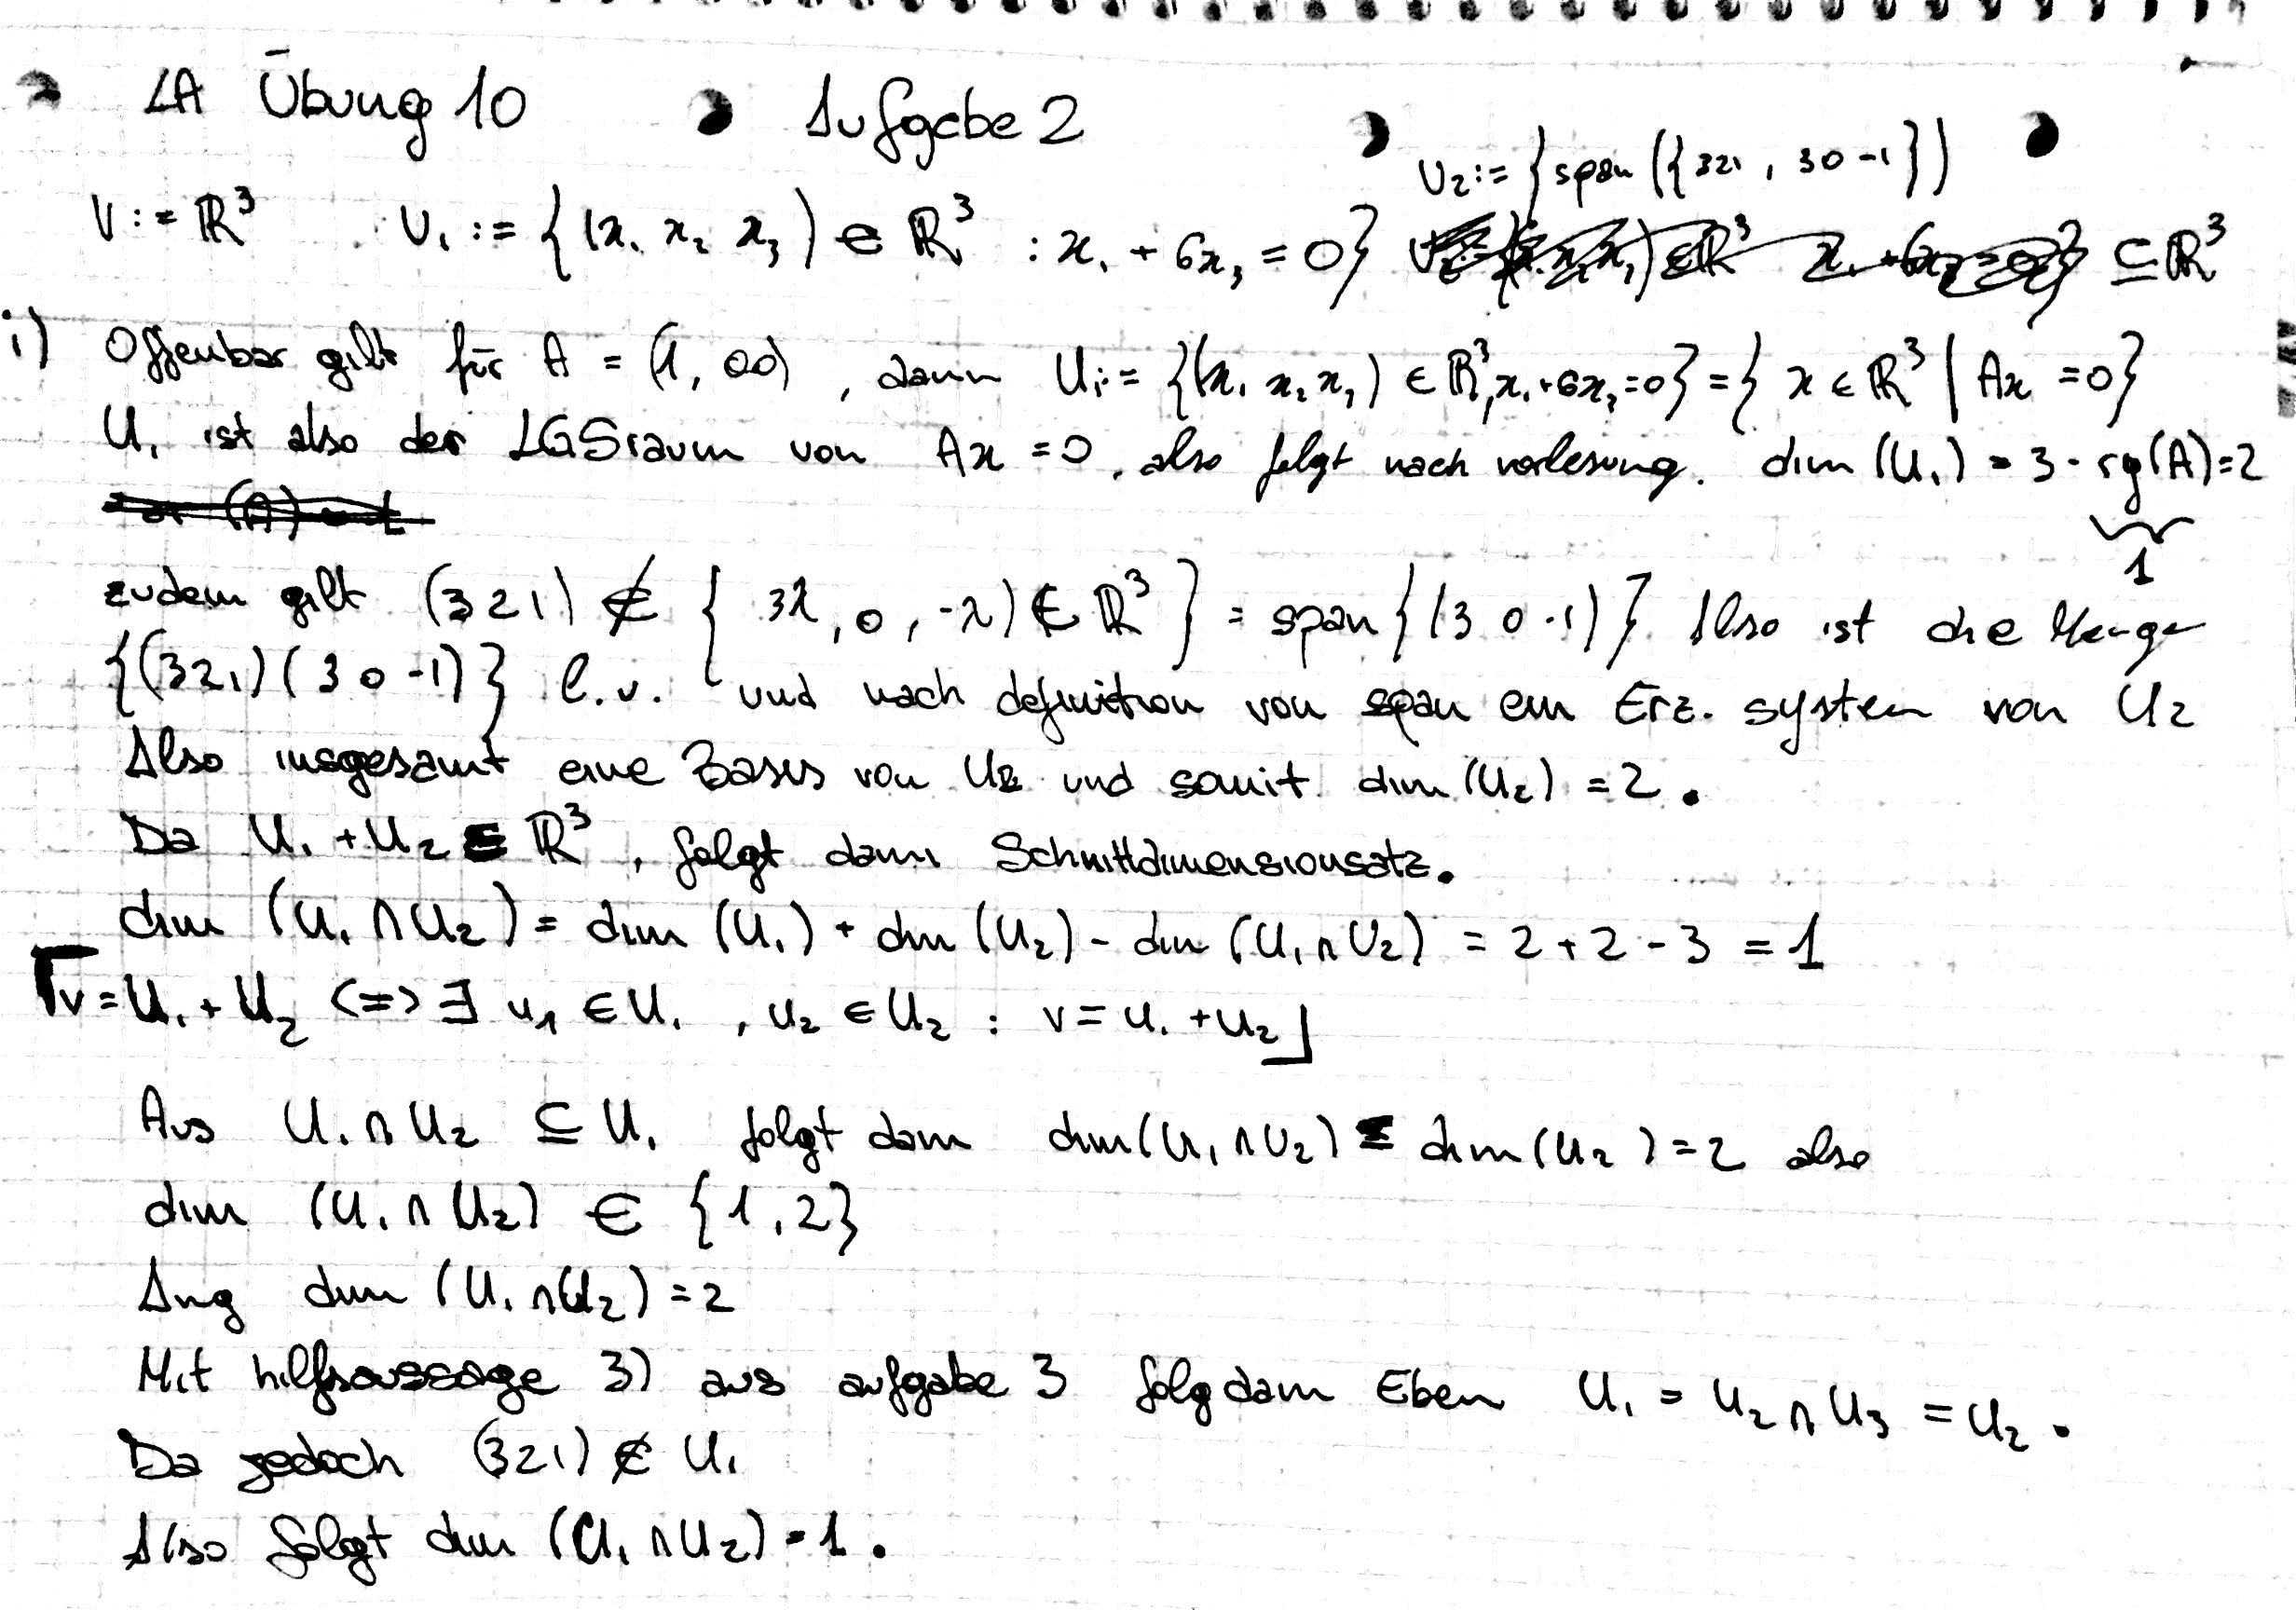 LA Übung 10 Aufgabe 2
U₂ := { span ({ 321 , 3 0 -1 })
V := ℝ³ U₁ := { (x₁ x₂ x₃) ∈ ℝ³ : x₁ + 6x₃ = 0} ⊆ ℝ³
i) Offenbar gilt für A = (1, 00) , dann U₁ := {(x₁ x₂ x₃) ∈ ℝ³, x₁+6x₃=0} = { x ∈ ℝ³ | Ax = 0}
U₁ ist also der LGSraum von Ax = 0, also folgt nach vorlesung. dim (U₁) = 3 - rg(A) = 2
1
zudem gilt (3 2 1) ∉ { 3λ, 0, -λ) ∈ ℝ³ } = span { (3 0 -1) } Also ist die Menge
{(3 2 1) ( 3 0 -1)} l.u. und nach definition von span ein Erz. system von U₂
Also insgesamt eine Basis von U₂ und somit dim (U₂) = 2.
Da U₁ + U₂ ⊆ ℝ³ , folgt dann Schnittdimensionsatz.
dim (U₁ ∩ U₂) = dim (U₁) + dim (U₂) - dim (U₁ ∩ U₂) = 2 + 2 - 3 = 1
⌈v = U₁ + U₂ <=> ∃ u₁ ∈ U₁ , u₂ ∈ U₂ : v = u₁ + u₂⌋
Aus U₁ ∩ U₂ ⊆ U₁ folgt dann dim(U₁ ∩ U₂) ≤ dim (U₂) = 2 also
dim (U₁ ∩ U₂) ∈ {1, 2}
Ang dim (U₁ ∩ U₂) = 2
Mit hilfsaussage 3) aus aufgabe 3 folg dann Eben U₁ = U₂ ∩ U₃ = U₂.
Da jedoch (3 2 1) ∉ U₁
Also folgt dim (U₁ ∩ U₂) = 1.